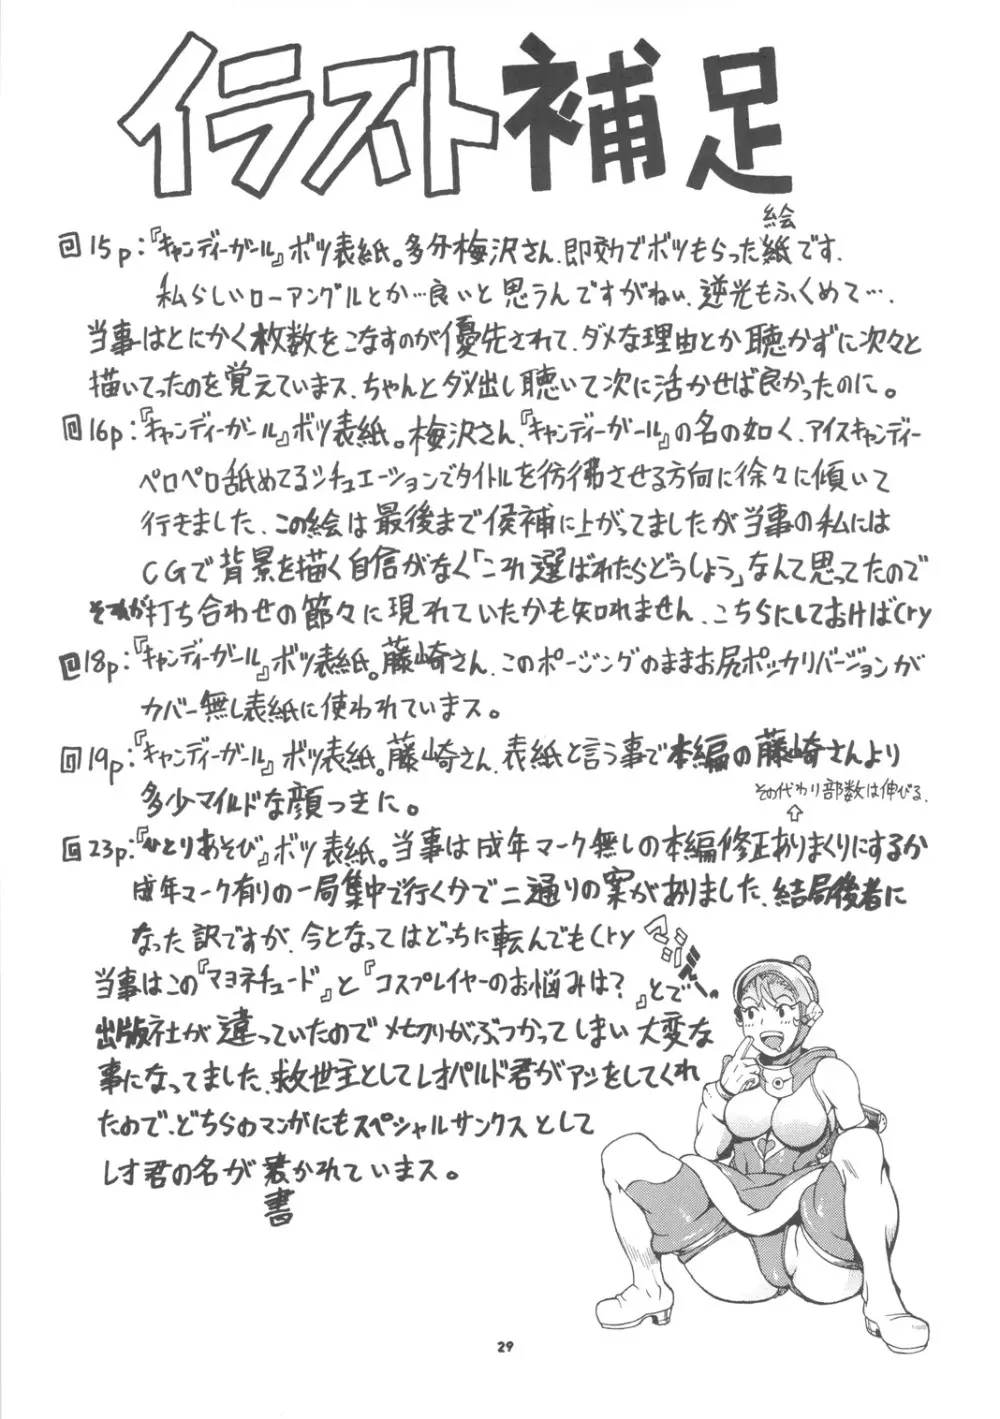 イラスト補足
絵
@15p:『キャンディーガール』ボツ表紙。多分梅沢さん、即効でボツもらった紙です、
私らしいローアングルとか…良いと思うんですがねぃ、逆光もふくめて…、
当事はとにかく枚数をこなすのが優先されて、ダメな理由とか聴かずに次々と
描いてったのを覚えていまス、ちゃんとダメ出し聴いて次に活かせば良かったのに。
@16p:『キャンディーガール』ボツ表紙。梅沢さん、『キャンディーガール』の名の如く、アイスキャンディー
ペロペロ舐めてるシチュエーションでタイトルを彷彿させる方向に徐々に傾いて
行きました、この絵は最後まで侯補に上がってましたが当事の私には
CGで背景を描く自信がなく「これ選ばれたらどうしよう」なんて思ってたので
それが打ち合わせの節々に現れていたかも知れません、こちらにしておけば(ry
@18p:『キャンディーガール』ボツ表紙。藤崎さん、このポージングのままお尻ポッカリバージョンが
カバー無し表紙に使われていまス。
@19p:『キャンディーガール』ボツ表紙。藤崎さん、表紙と言う事で本編の藤崎さんより
多少マイルドな顔つきに。
その代わり部数は伸びる、
⇧
@23p:『ひとりあそび』ボツ表紙。当事は成年マーク無しの本編修正ありまくりにするか
成年マーク有りの一局集中で行くかで二通りの案がありました、結局後者に
なった訳ですが、今となってはどっちに転んでも(ry
マジで
当事はこの『マヨネチュード』と『コスプレイヤーのお悩みは?』とで
出版社が違っていたのでメモクリがぶつかってしまい大変な
事になってました、救世主としてレオパルド君がアシをしてくれ
たので、どちらのマンガにもスペシャルサンクスとして
レオ君の名が書かれていまス。
書
29